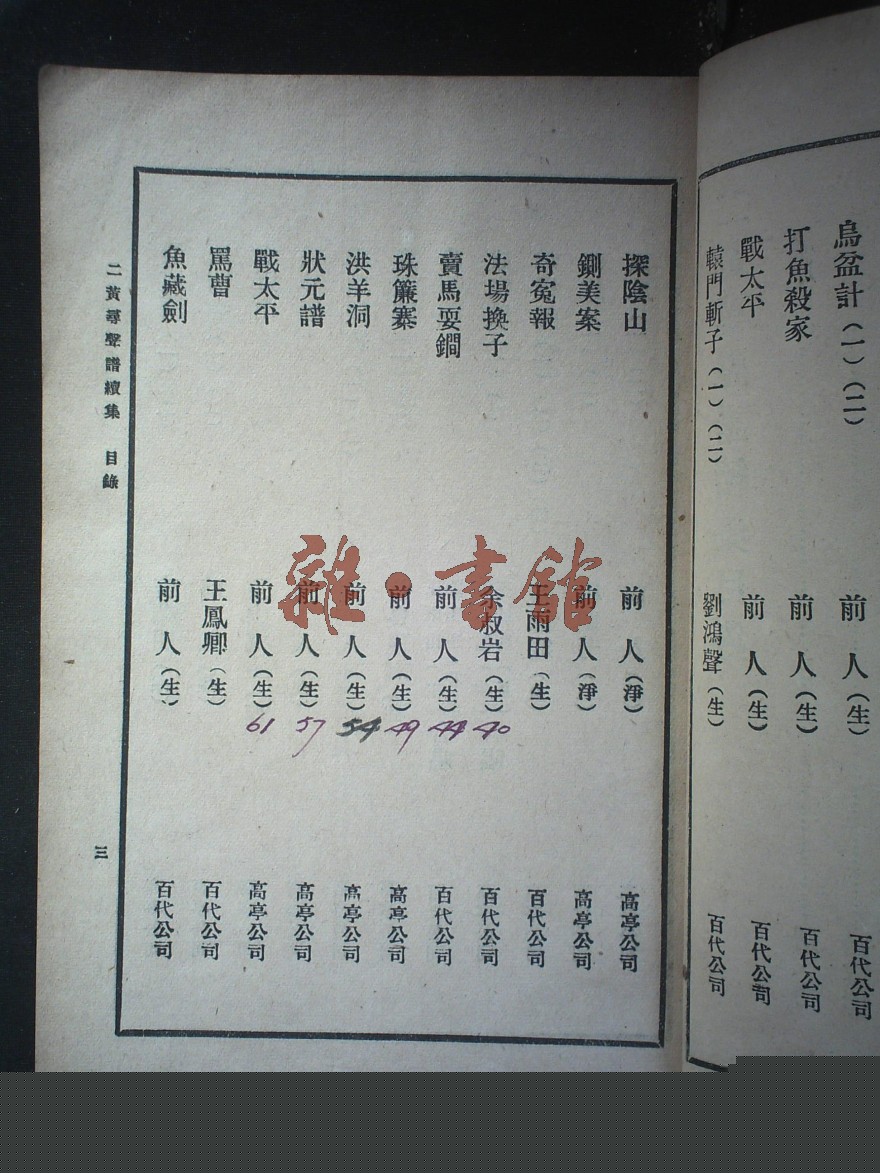 烏盆計(一)(二) 前人(生) 百代公司
打魚殺家 前人(生) 百代公司
戰太平 前人(生) 百代公司
轅門斬子(一)(二) 劉鴻聲(生) 百代公司
探陰山 前人(淨) 高亭公司
鍘美案 前人(淨) 高亭公司
奇冤報 王雨田(生) 百代公司
法場換子 余叔岩(生) 40 百代公司
賣馬耍鐧 前人(生) 44 百代公司
珠簾寨 前人(生) 49 高亭公司
洪羊洞 前人(生) 54 高亭公司
狀元譜 前人(生) 57 高亭公司
戰太平 前人(生) 61 高亭公司
罵曹 王鳳卿(生) 百代公司
魚藏劍 前人(生) 百代公司
二黃尋聲譜續集 目錄 三
雜·書館